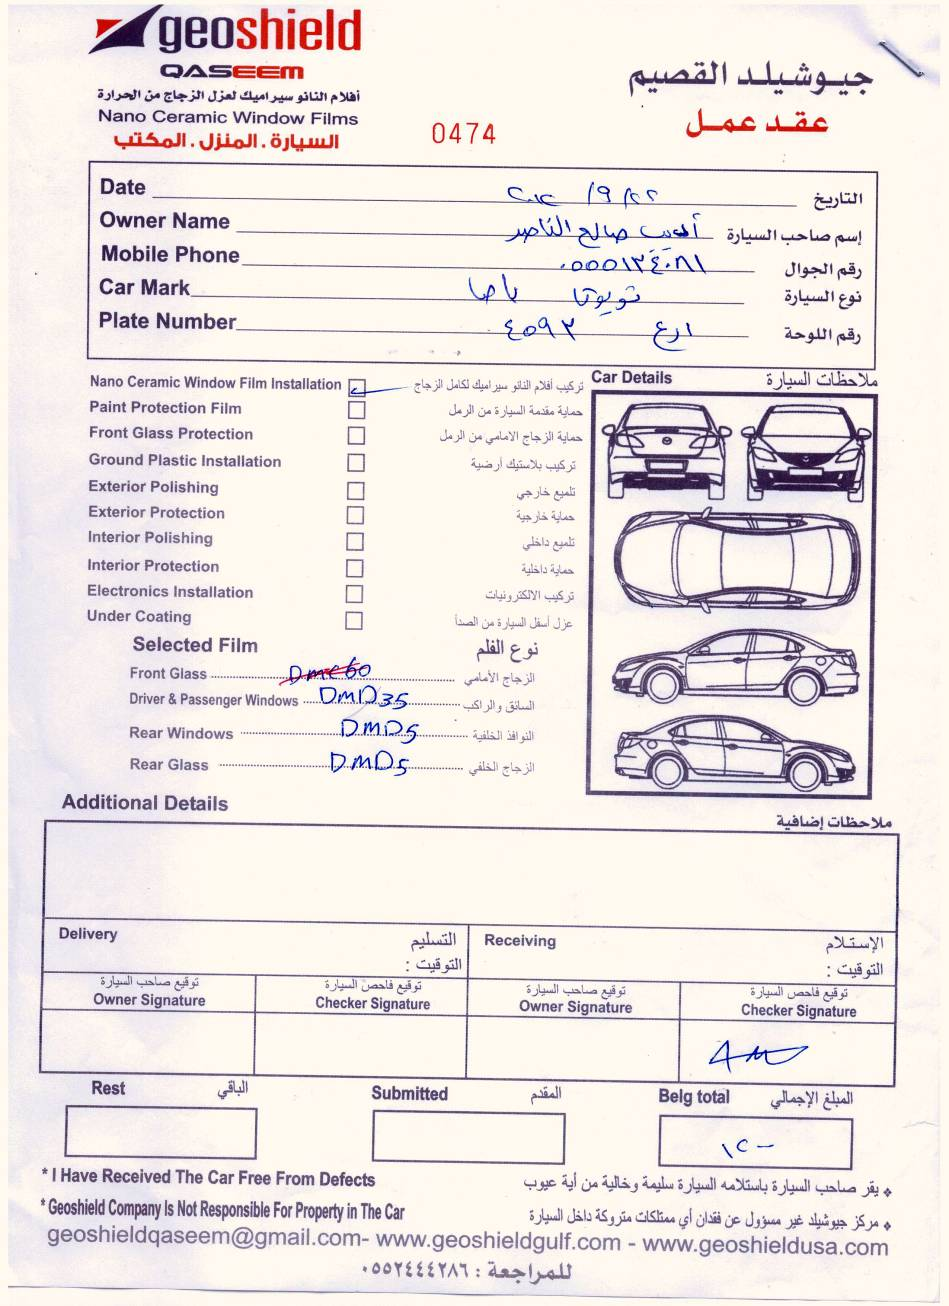 geoshield
QASEEM
أفلام النانو سيراميك لعزل الزجاج من الحرارة
Nano Ceramic Window Films
السيارة . المنزل . المكتب
0474
جيوشيلد القصيم
عقد عمل
Date ٢٢/ ٩/ التاريخ
Owner Name صالح الناصر إسم صاحب السيارة
Mobile Phone رقم الجوال
Car Mark تويوتا نوع السيارة
Plate Number ٤٥٩٣ رقم اللوحة
Nano Ceramic Window Film Installation تركيب أفلام النانو سيراميك لكامل الزجاج
Paint Protection Film حماية مقدمة السيارة من الرمل
Front Glass Protection حماية الزجاج الامامي من الرمل
Ground Plastic Installation تركيب بلاستيك أرضية
Exterior Polishing تلميع خارجي
Exterior Protection حماية خارجية
Interior Polishing تلميع داخلي
Interior Protection حماية داخلية
Electronics Installation تركيب الالكترونيات
Under Coating عزل أسفل السيارة من الصدأ
Car Details ملاحظات السيارة
Selected Film نوع الفلم
Front Glass الزجاج الأمامي
Driver & Passenger Windows DMD35 السائق والراكب
Rear Windows DMD5 النوافذ الخلفية
Rear Glass DMD5 الزجاج الخلفي
Additional Details ملاحظات إضافية
Delivery التسليم
التوقيت :
Receiving الإستلام
التوقيت :
توقيع صاحب السيارة توقيع فاحص السيارة توقيع صاحب السيارة توقيع فاحص السيارة
Owner Signature Checker Signature Owner Signature Checker Signature
Rest الباقي Submitted المقدم Belg total المبلغ الإجمالي
* I Have Received The Car Free From Defects يقر صاحب السيارة باستلامه السيارة سليمة وخالية من أية عيوب
* Geoshield Company Is Not Responsible For Property in The Car مركز جيوشيلد غير مسؤول عن فقدان أي ممتلكات متروكة داخل السيارة
geoshieldqaseem@gmail.com- www.geoshieldgulf.com - www.geoshieldusa.com
للمراجعة : ٠٥٥٢٤٤٤٢٨٦